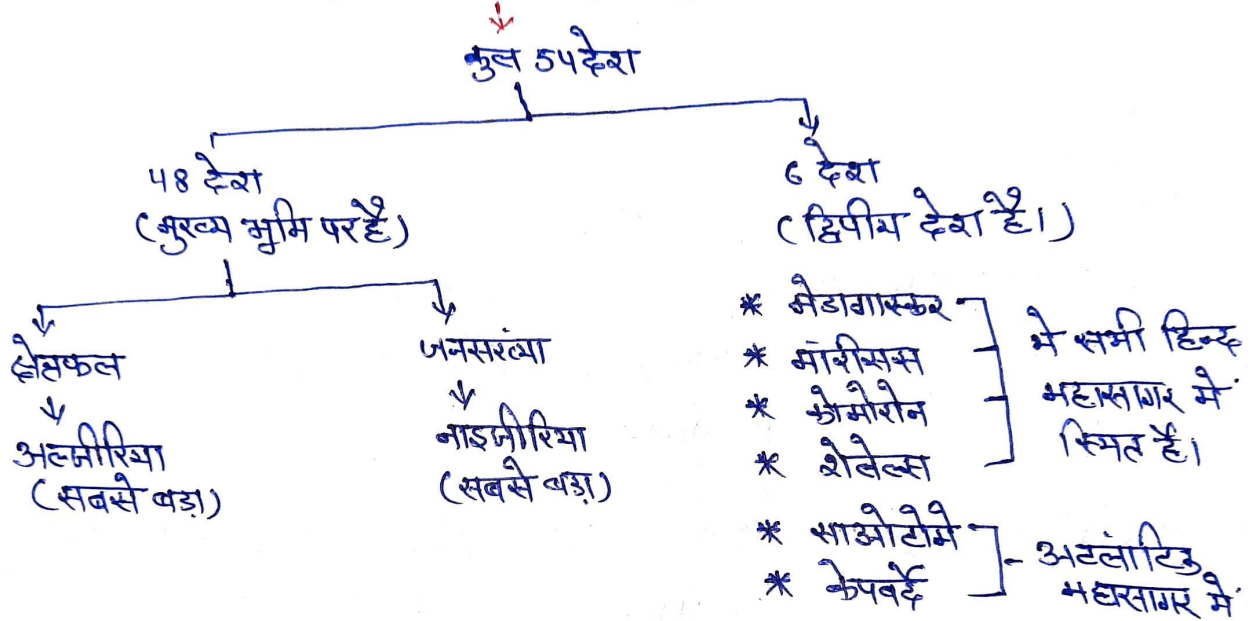 कुल 54 देश
48 देश
(मुख्य भूमि पर है)
6 देश
(द्विपीय देश है।)
क्षेत्रफल
अल्जीरिया
(सबसे बड़ा)
जनसंख्या
नाइजीरिया
(सबसे बड़ा)
* मेडागास्कर
* मॉरीसस
* कोमोरोन
* शेवेल्स
ये सभी हिन्द
महासागर में
स्थित है।
* साओटोमे
* केपवर्दे
अटलांटिक
महासागर में